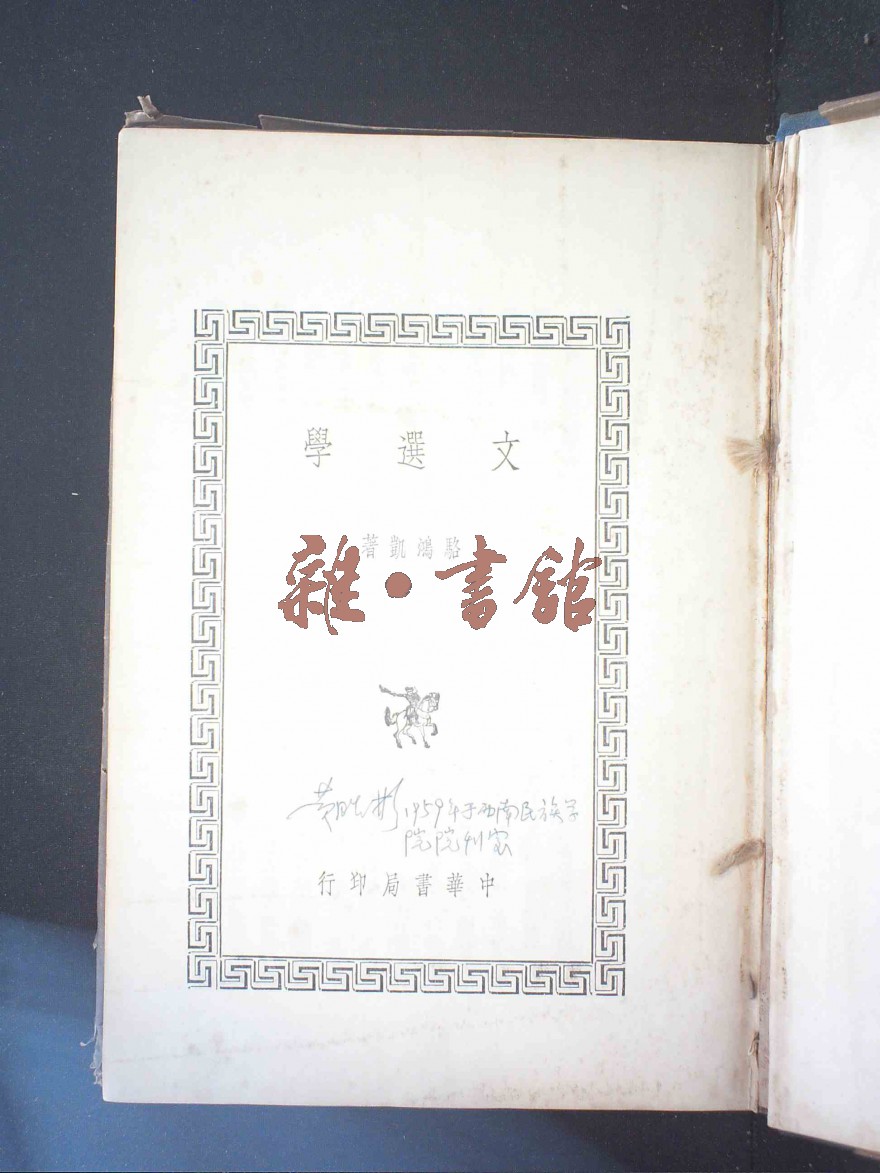 文選學
駱鴻凱著
雜·書舘
1959年于西南民族学
院院刊室
中華書局印行